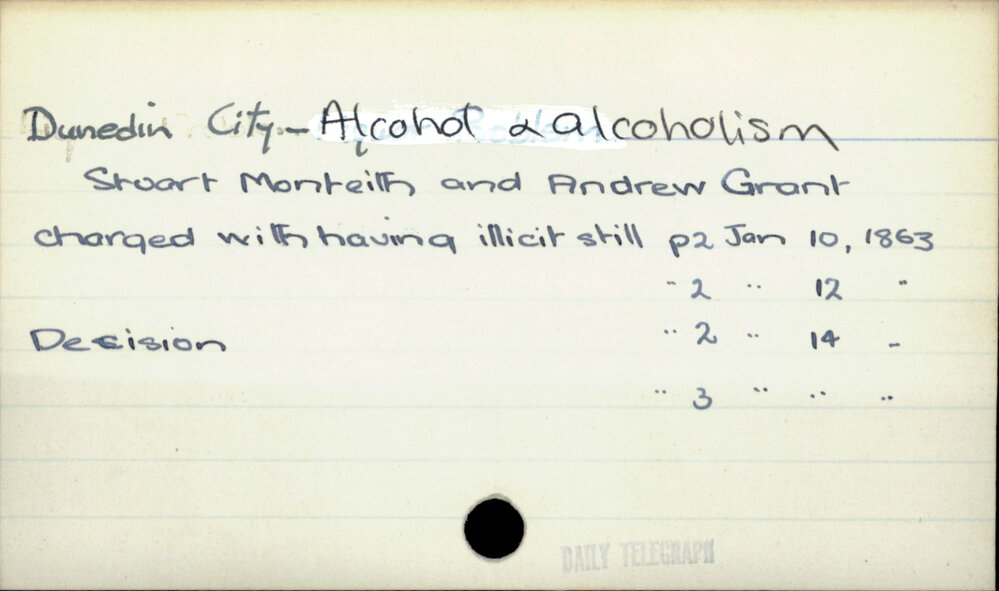 Dunedin City - Alcohol & alcoholism
Stuart Monteith and Andrew Grant
charged with having illicit still p2 Jan 10, 1863
" 2 " 12 "
Decision " 2 " 14 "
" 3 " " "
DAILY TELEGRAPH